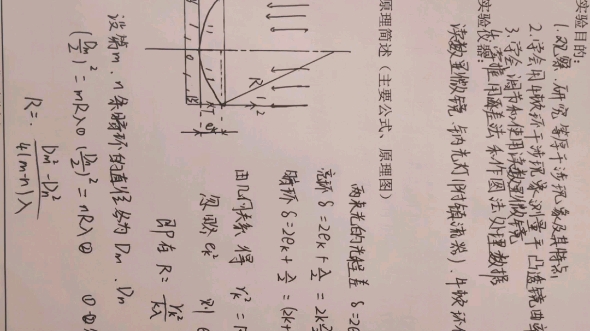 实验目的:
1.观察、研究等厚干涉现象及其特点
2.学会用牛顿环干涉现象测量平凸透镜曲率
3.学会调节和使用读数显微镜
4.掌握用逐差法和作图法处理数据
实验仪器:
读数显微镜、钠光灯(附镇流器)、牛顿环
原理简述(主要公式、原理图)
R
两束光的光程差 δ=2e
亮环 δ=2ek+λ/2=2k
暗环 δ=2ek+λ/2=(2k+
由几何关系得 rk²=
忽略 ek² 则
即有 R=rk²/kλ
设第m、n条暗环的直径分为Dm、Dn
(Dm/2)²=mRλ① (Dn/2)²=nRλ②
R=Dm²-Dn²/4(m-n)λ